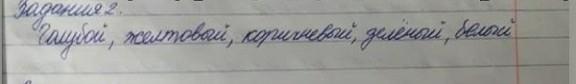 Задания 2.
Голубой, желтовый, коричневый, зелёный, белый